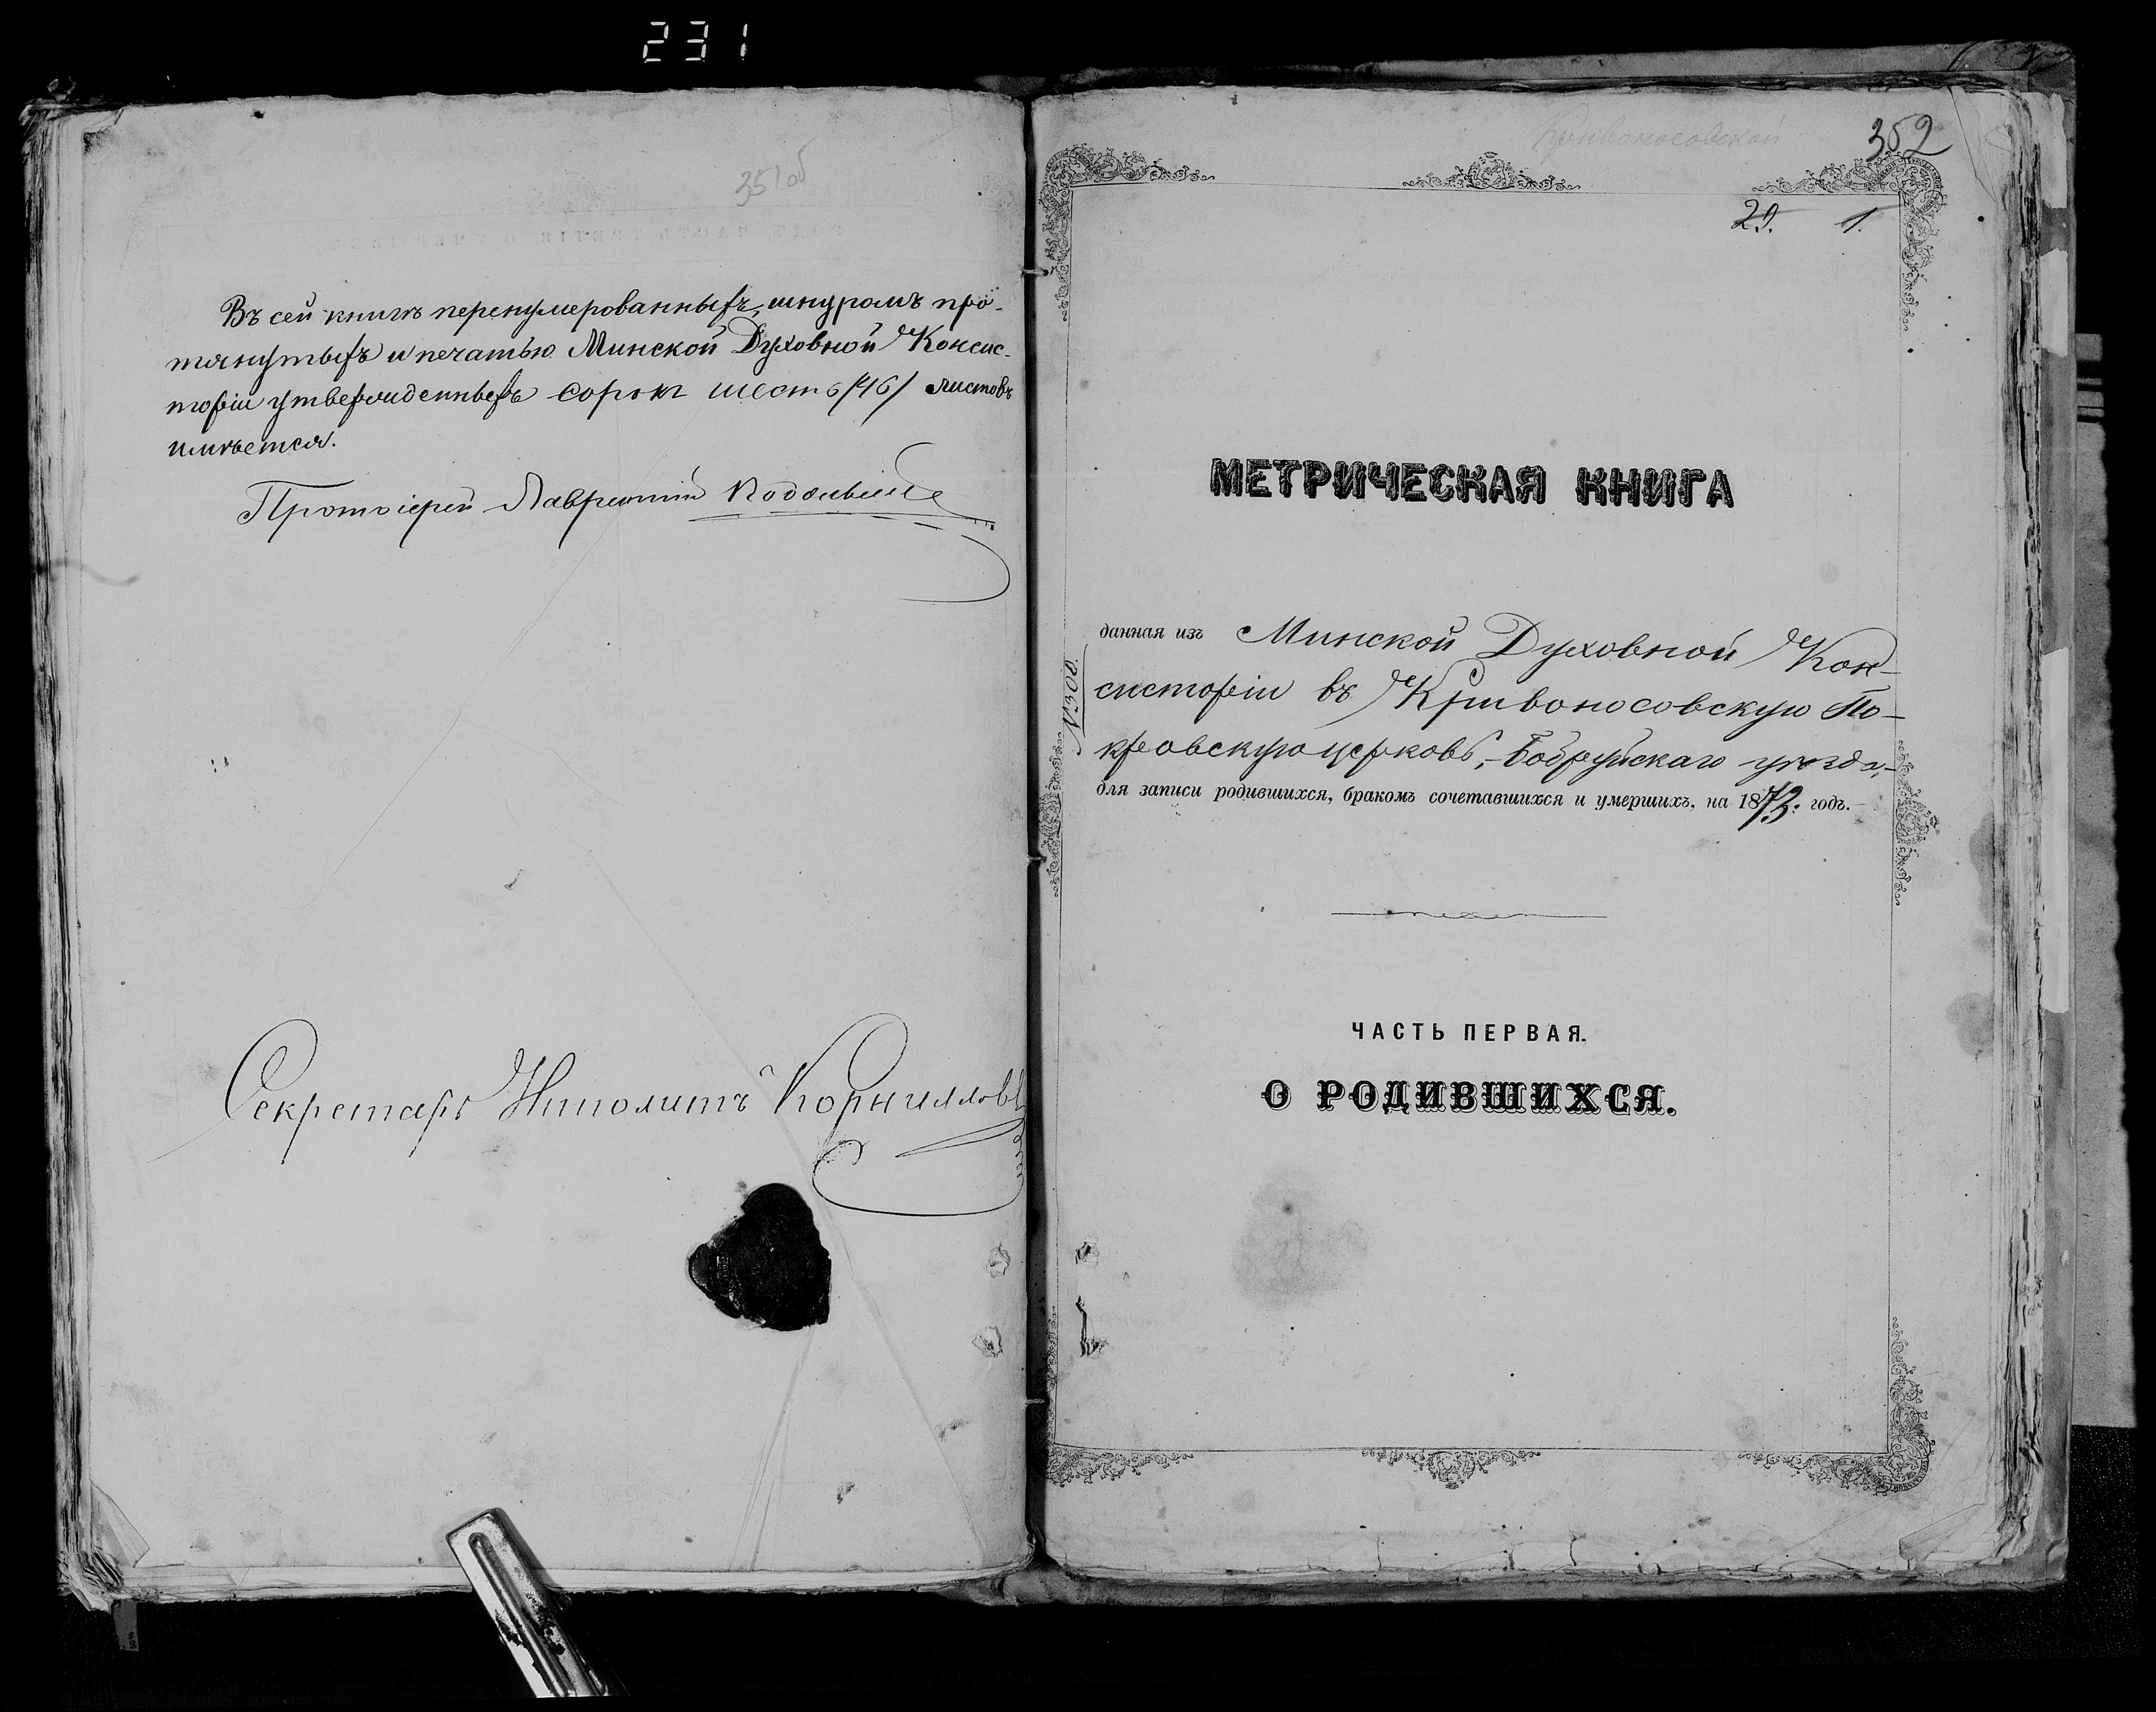 231
351об
Въ сей книгѣ перенумерованныхъ, шнуромъ про-
тянутыхъ и печатью Минской Духовной Консис-
торіи утвержденныхъ сорокъ шесть /46/ листовъ
имѣется.
Протоіерей Лаврентій
Секретарь Ипполитъ Корниловъ
Кривоносовской
352
29. 1.
МЕТРИЧЕСКАЯ КНИГА
данная изъ Минской Духовной Кон-
систоріи въ Кривоносовскую По-
кровскую церковь, Бобруйскаго уѣзда,
для записи родившихся, бракомъ сочетавшихся и умершихъ, на 1873. годъ.
ЧАСТЬ ПЕРВАЯ.
О РОДИВШИХСЯ.